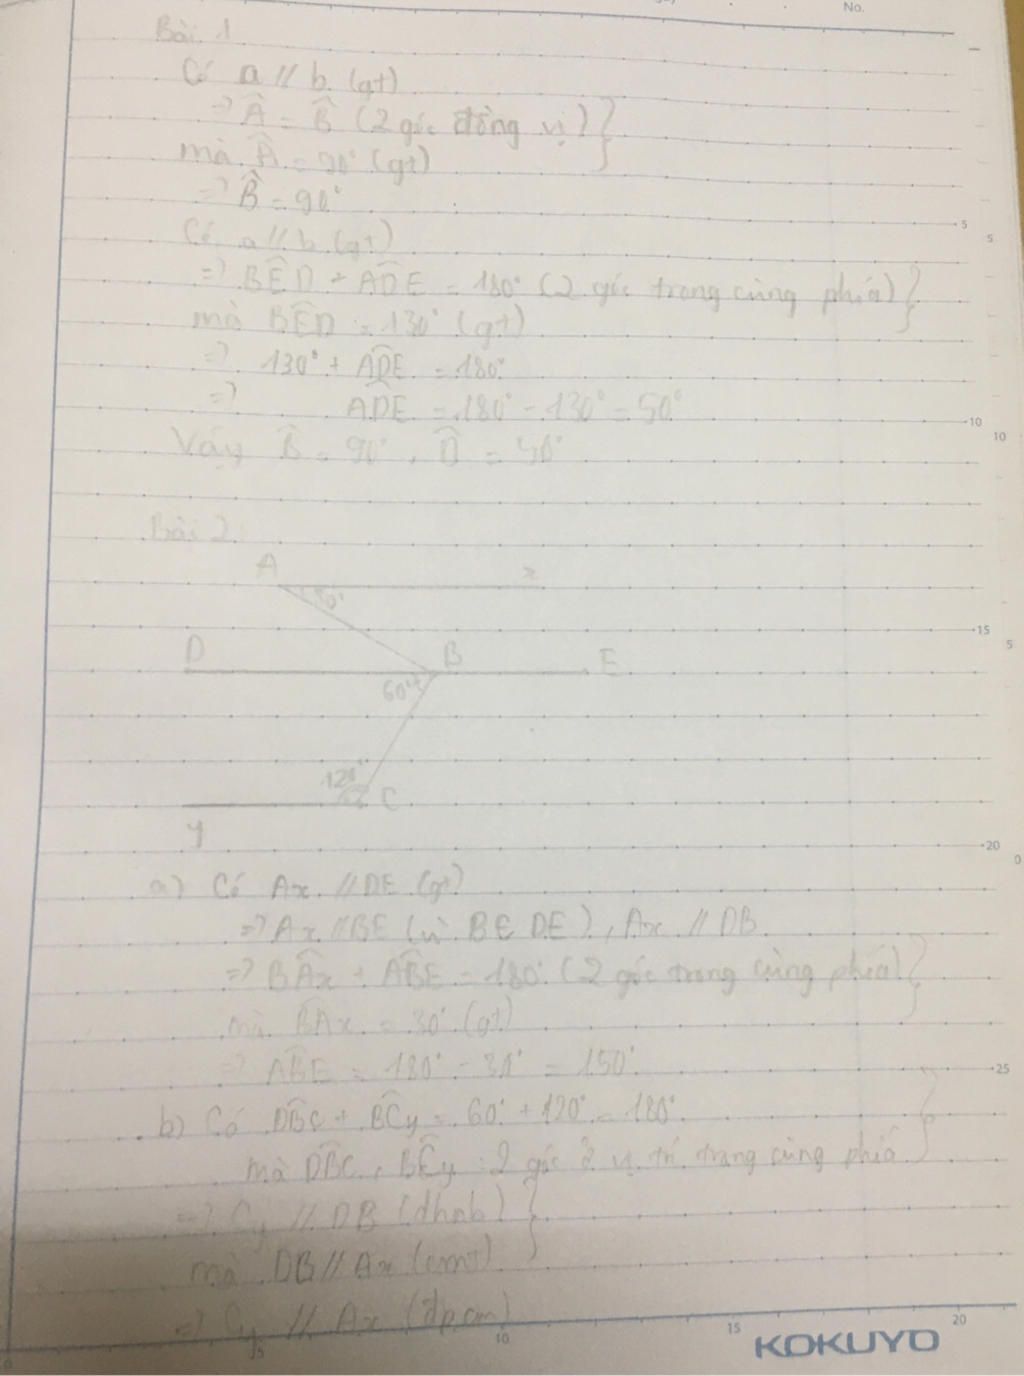 No.
Bài 1
Có a // b (gt)
=> Â = B̂ (2 góc đồng vị) }
mà Â = 90° (gt)
=> B̂ = 90°
Có a // b (gt)
=> BÊD + ADE = 180° (2 góc trong cùng phía) }
mà BÊD = 130° (gt)
=> 130° + ADE = 180°
=> ADE = 180° - 130° = 50°
Vậy B̂ = 90°, D̂ = 50°
Bài 2
A x
30°
D B E
60°
120°
C
y
a) Có Ax // DE (gt)
=> Ax // BE (vì B ∈ DE), Ax // DB
=> BÂx + ABE = 180° (2 góc trong cùng phía) }
mà BAx = 30° (gt)
=> ABE = 180° - 30° = 150°
b) Có DBC + BCy = 60° + 120° = 180°
mà DBC, BCy : 2 góc ở vị trí trong cùng phía }
=> Cy // DB (dhnb) }
mà DB // Ax (cmt)
=> Cy // Ax (đpcm)
5
5
10
10
15
5
20
0
25
0
5
10
15
20
KOKUYO